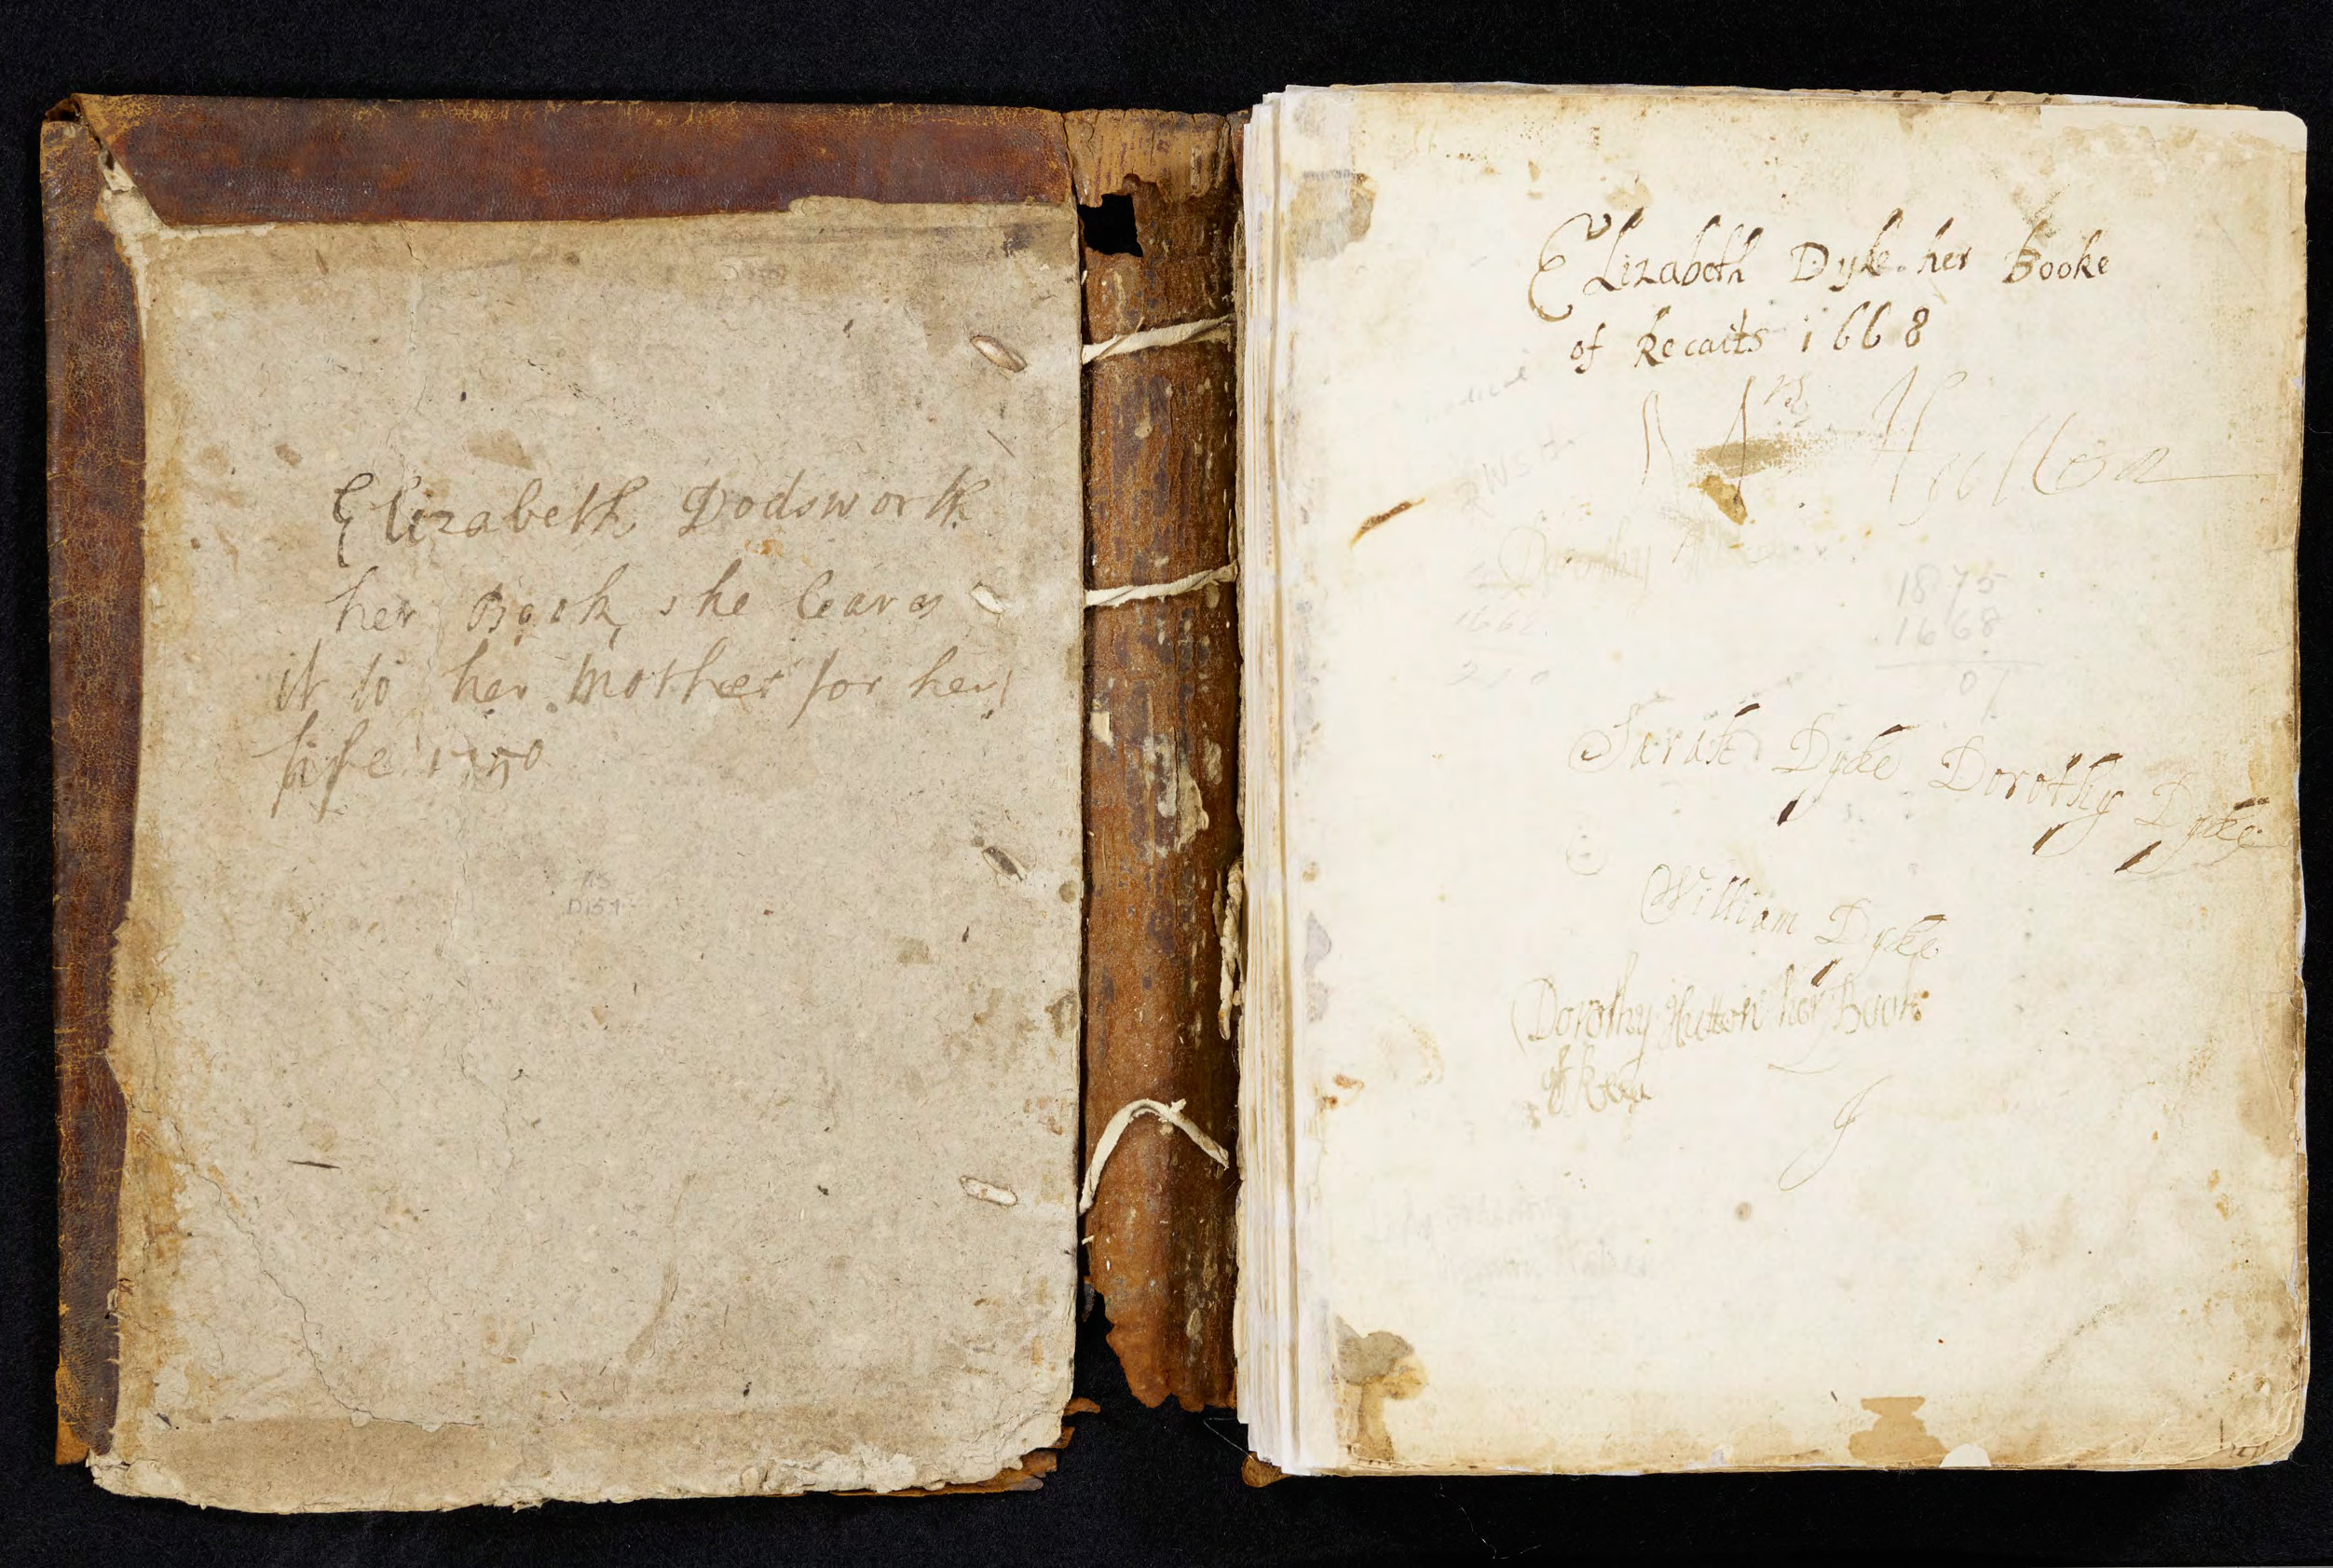 Elizabeth Dodsworth
her Book, she leaves
it to her Mother for her
life 1750
Elizabeth Dyke her Booke
of Recaits 1668
Mrs
Dorothy
1875
1668
1668
07
Sarah Dyke Dorothy Dyke
William Dyke
Dorothy Hutton her Book
of